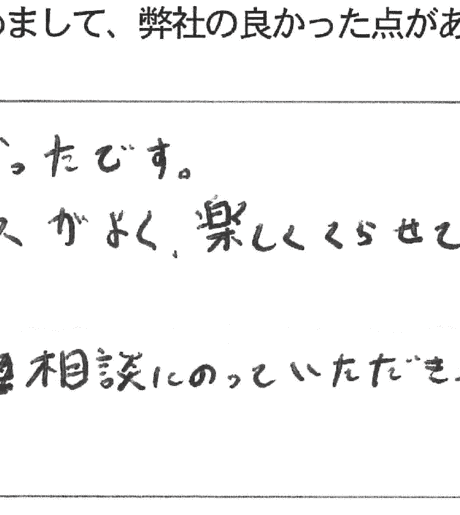 まして、弊社の良かった点があ
ったです。
スがよく、楽しくくらせて
相談にのっていただき